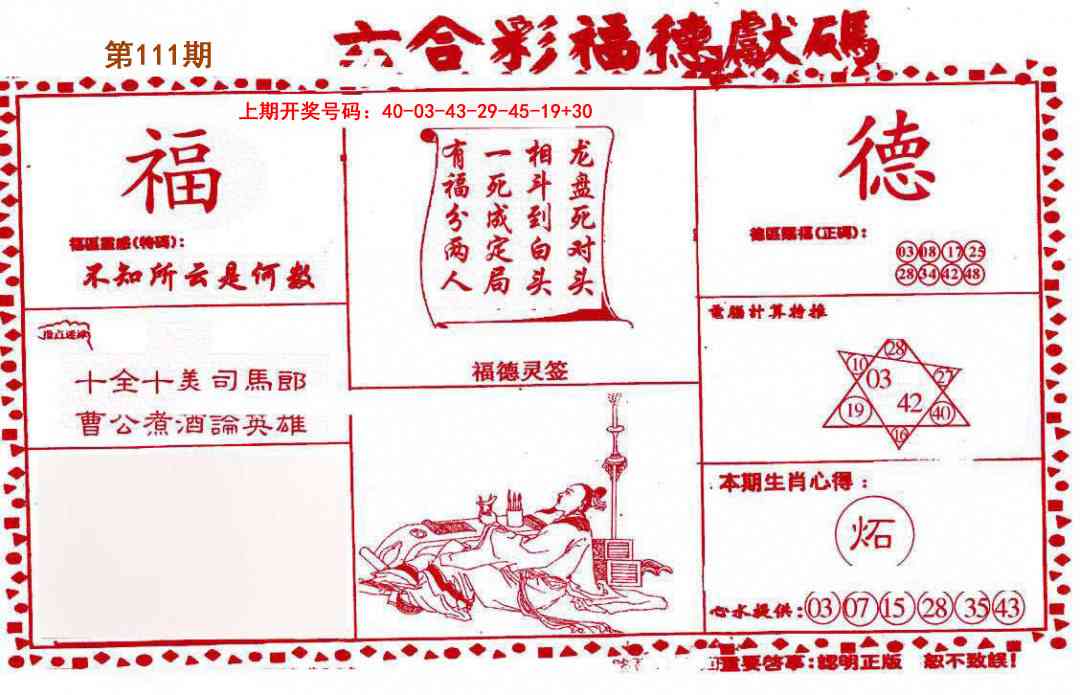 第111期
六合彩福德獻碼
上期开奖号码：40-03-43-29-45-19+30
福
福區靈感(特碼)：
不知所云是何数
十全十美司馬郎
曹公煮酒論英雄
龙盘死对头
相斗到白头
一死成定局
有福分两人
福德灵签
德
德區賜福(正碼)：
03 08 17 25
28 34 42 48
電腦計算特推
28
10 03 27
19 42 40
16
本期生肖心得：
炻
心水提供：03 07 15 28 35 43
重要啓事：認明正版 恕不致誤！